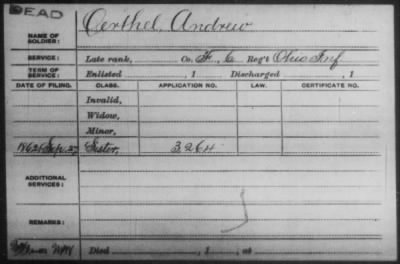 DEAD
NAME OF SOLDIER: Oerthel, Andrew
SERVICE: Late rank, Co. F, 6 Reg't Ohio Inf
TERM OF SERVICE: Enlisted , 1 Discharged , 1
DATE OF FILING. CLASS. APPLICATION NO. LAW. CERTIFICATE NO.
Invalid,
Widow,
Minor,
1862 Sep. 27 Sister, 3264
ADDITIONAL SERVICES:
REMARKS:
Died , 1 , at